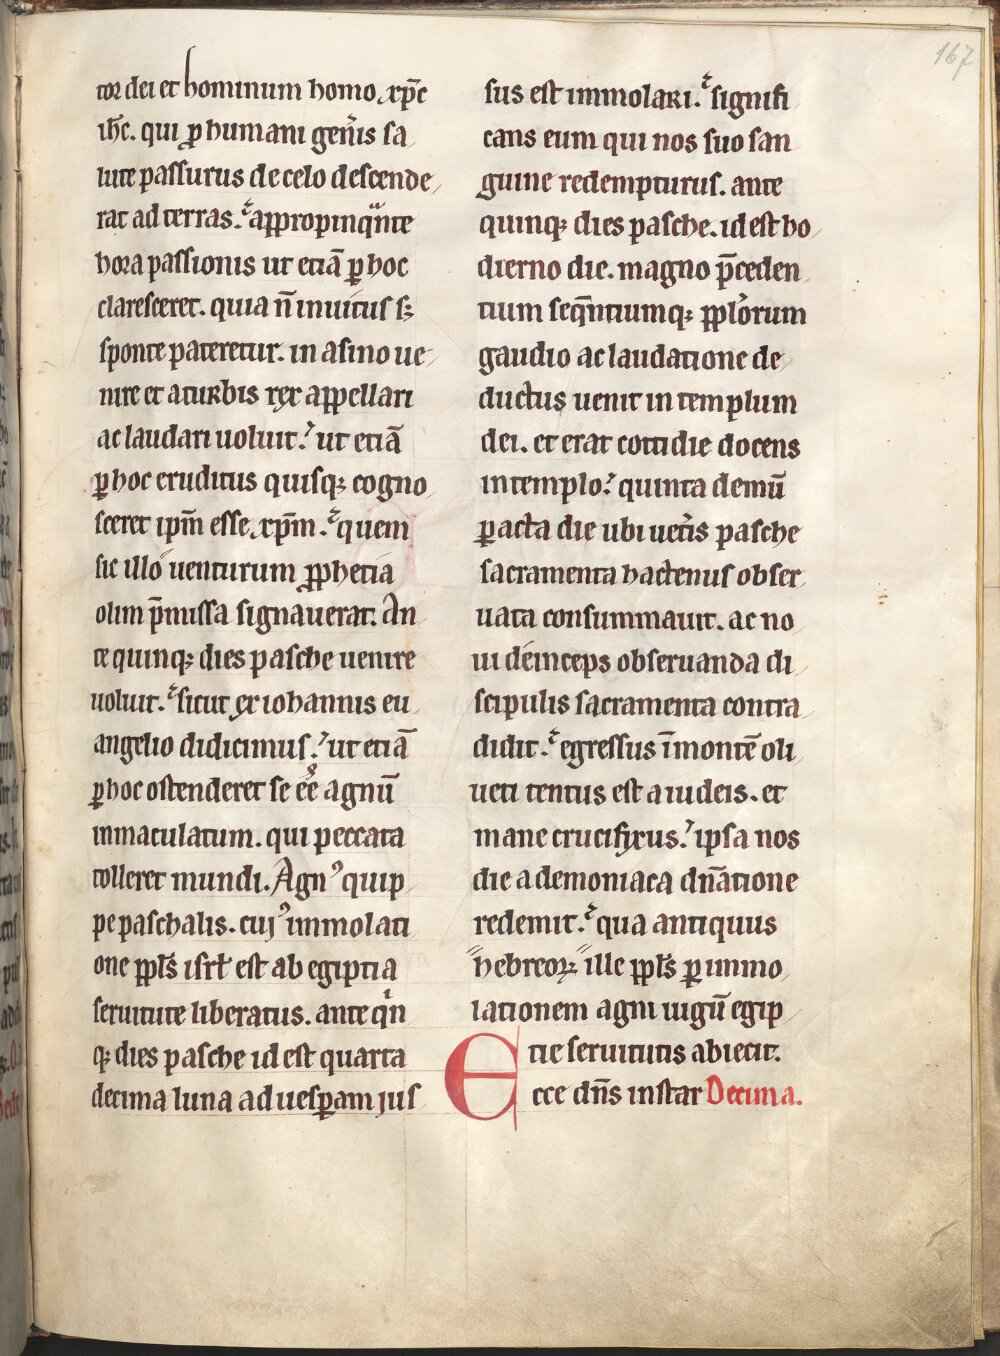 167
tor dei et hominum homo xp̄c
ih̄c. qui ꝑ humani gen̄is sa
lute passurus de celo descende
rat ad terras. appropinqᵃnte
hora passionis ut etiā ꝑ hoc
claresceret. quia n̄ inuitus sꝫ
sponte pateretur. in asino ue
nire et a turbis rex appellari
ac laudari uoluit. ut etiā
ꝑ hoc eruditus quisqꝫ cogno
sceret ip̄m esse xp̄m. quem
sic illo uenturum ꝓphetia
olim p̄missa signauerat. An
te quinqꝫ dies pasche uenire
uoluit. sicut ex iohannis eu
angelio didicimus. ut etiā
ꝑ hoc ostenderet se eē agnū
inmaculatum. qui peccata
tolleret mundi. Agnꝰ quip
pe paschalis. cuiꝰ immolati
one ppl̄s isrl̄ est ab egiptia
seruitute liberatus. ante qⁱn
qꝫ dies pasche id est quarta
decima luna ad uesꝑam ius
sus est immolari. signifi
cans eum qui nos suo san
guine redempturus. ante
quinqꝫ dies pasche. id est ho
dierno die. magno p̄ceden
tium seq̄ntiumqꝫ ppl̓orum
gaudio ac laudatione de
ductus uenit in templum
dei. et erat cottidie docens
in templo. quinta demū
ꝑacta die ubi uet̓is pasche
sacramenta hactenus obser
uata consummauit. ac no
ui deinceps obseruanda di
scipulis sacramenta contra
didit. egressus ī montē oli
ueti tentus est a iudeis. et
mane crucifixus. ipsa nos
die a demoniaca dn̄atione
redemit. qua antiquus
hebreoꝝ ille ppl̄s ꝑ immo
lationem agni iugū egip
tie seruitutis abiecit.
Ecce dn̄s instar Decima.